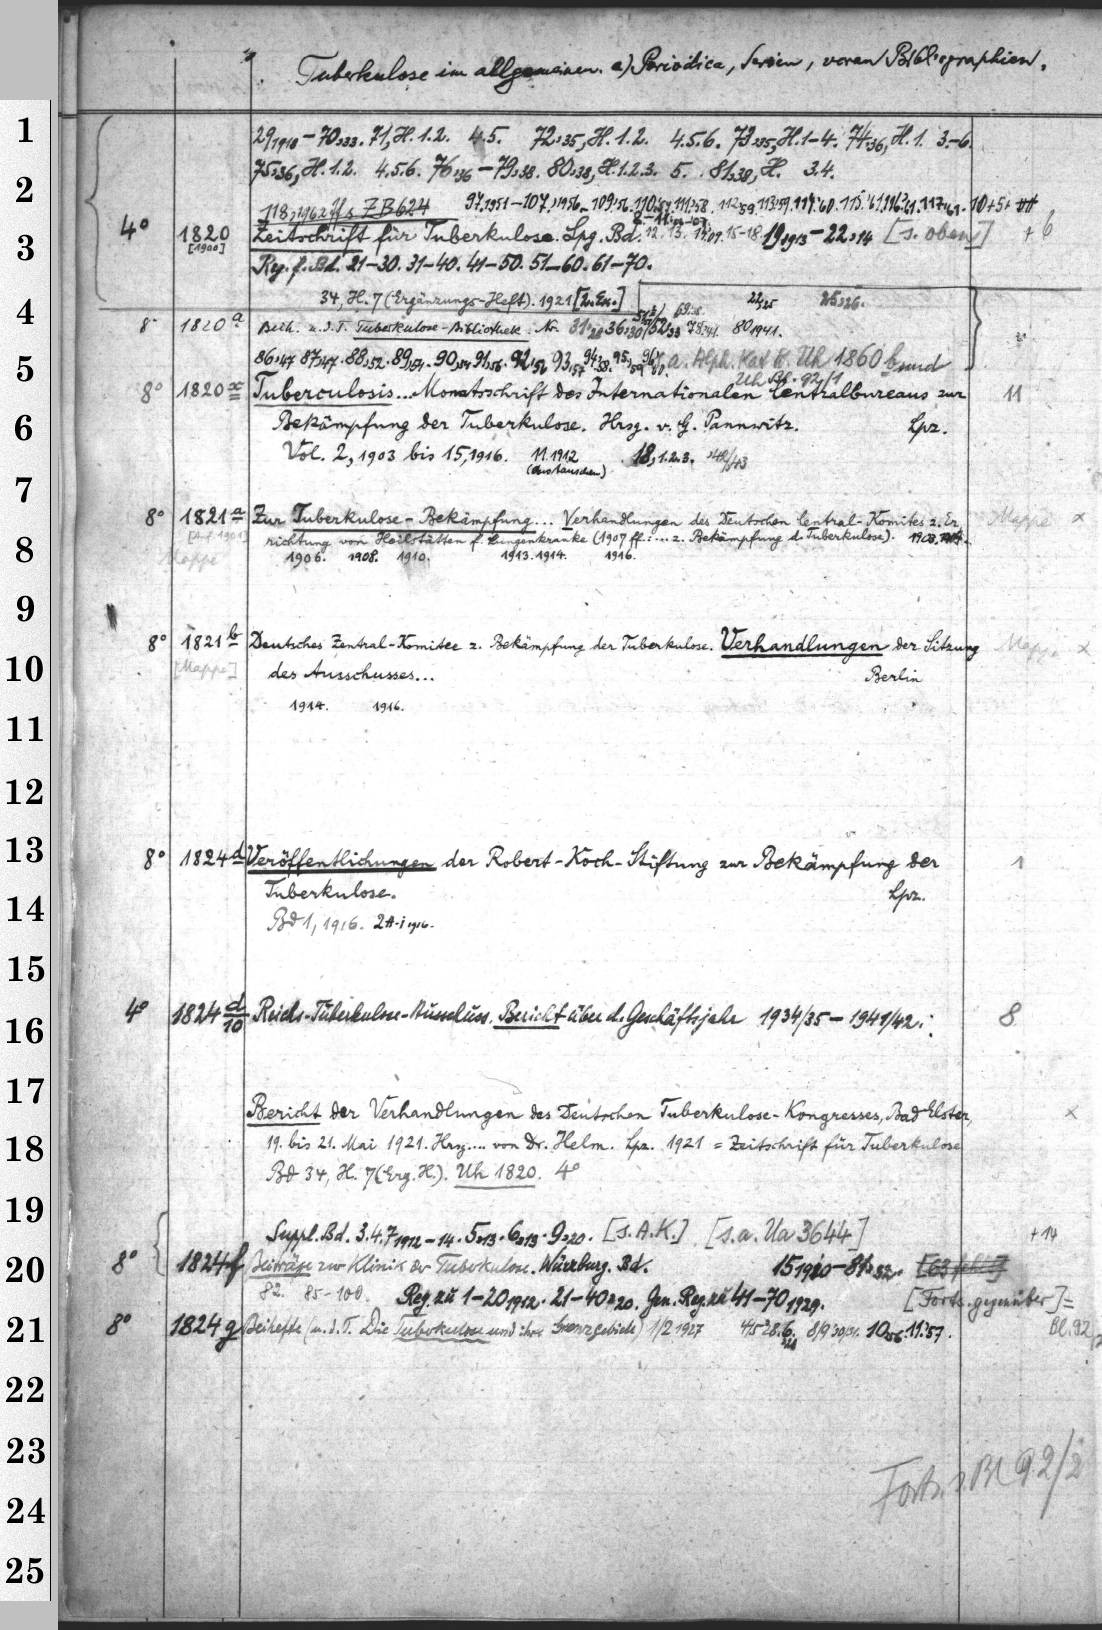 Tuberkulose im allgemeinen. a) Periodica, Serien, voran Bibliographien.
1 29,1918 – 70,33. 71, H. 1.2. 4.5. 72,35, H. 1.2. 4.5.6. 73,35, H. 1–4. 74,36, H. 1. 3–6.
75,36, H. 1.2. 4.5.6. 76,36 – 79,38. 80,38, H. 1.2.3. 5. 81,38, H. 3.4.
2 118,1962 ff s ZB 624 97,1951 – 107,1956 – 109,56. 110,57. 111,58. 112,59. 113,59. 114,60. 115,61. 116,61. 117,61. 10+5+
3 4° 1820 [1900] Zeitschrift für Tuberkulose. Lpg. Bd. 12. 13. 14,09. 15–18. 19,1913 – 22,14 [s. oben] + 6
Reg. f. Bd. 21–30. 31–40. 41–50. 51–60. 61–70.
34, H. 7 (Ergänzungs-Heft). 1921 22,25 25,26.
4 8° 1820 a Beih. u. d. T. Tuberkulose-Bibliothek. Nr. 31,28 36,30 52,33 78,41. 80,1941.
5 86,47 87,47. 88,52. 89,54. 90,54 91,56. 92,56 93,57 94,58. 95,59 96,60. a. Alph. Kat. K. Uh 1860 b und
Uh Bl. 92/1
8° 1820 Tuberculosis... Monatsschrift des Internationalen Centralbureaus zur 11
6 Bekämpfung der Tuberkulose. Hrsg. v. G. Pannwitz. Lpz.
Vol. 2, 1903 bis 15, 1916. 11.1912 18, 1.2.3. 42/43
(Austauschex.)
7 8° 1821 a Zur Tuberkulose-Bekämpfung... Verhandlungen des Deutschen Central-Komites z. Er Mappe x
8 richtung von Heilstätten f. Lungenkranke (1907 ff.: ... z. Bekämpfung d. Tuberkulose). 1903.
Mappe 1906. 1908. 1910. 1913. 1914. 1916.
9
10 8° 1821 b Deutsches Zentral-Komitee z. Bekämpfung der Tuberkulose. Verhandlungen der Sitzung Mappe x
[Mappe] des Ausschusses... Berlin
1914. 1916.
11
12
13 8° 1824 d Veröffentlichungen der Robert-Koch-Stiftung zur Bekämpfung der 1
14 Tuberkulose. Lpz.
Bd 1, 1916. 2 1916.
15
16 4° 1824 d/10 Reichs-Tuberkulose-Ausschuss. Bericht über d. Geschäftsjahr 1934/35 – 1941/42. 8
17 Bericht der Verhandlungen des Deutschen Tuberkulose-Kongresses, Bad Elster, x
18 19. bis 21. Mai 1921. Hrsg.... von Dr. Helm. Lpz. 1921 = Zeitschrift für Tuberkulose
Bd 34, H. 7 (Erg. H.). Uh 1820. 4°
19 Suppl. Bd. 3.4.7,1912–14. 5,13. 6,13. 9,20. [s. A.K.] [s. a. Ua 3644] +14
20 8° 1824 f Beiträge zur Klinik der Tuberkulose. Würzburg. Bd. 15,1910 – 81,32.
82. 85–100. Reg. zu 1–20,1912. 21–40,20. Gen. Reg. zu 41–70,1929. [Forts. gegenüber] =
21 8° 1824 g Beihefte (u. d. T. Die Tuberkulose und ihre Grenzgebiete) 1/2 1927 4/5 28. 6. 8/9 30/31. 10,56. 11,57. Bl. 92
22
23
24 Forts. s. Bl 92/2
25